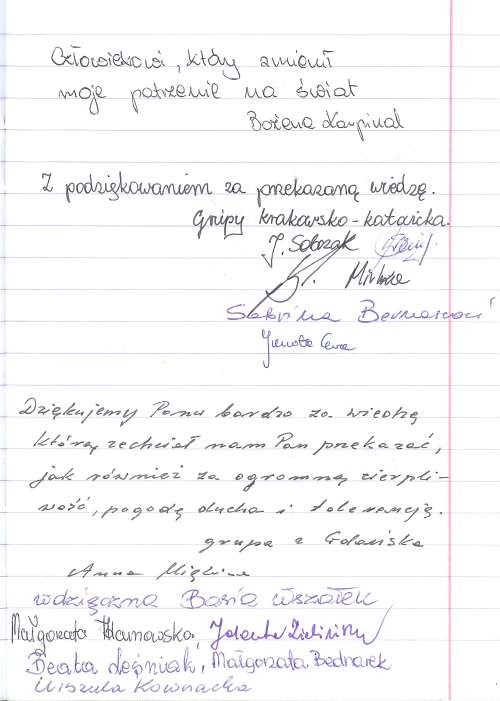 Człowiekowi, który zmienił
moje patrzenie na świat
Bożena Karpinal
Z podziękowaniem za przekazaną wiedzę.
Grupy krakowsko-katowicka.
J. Sobczak
Sabrina
Dziękujemy Panu bardzo za wiedzę
którą zechciał nam Pan przekazać,
jak również za ogromną cierpli-
wość, pogodę ducha i tolerancję.
grupa z Gdańska
Anna
wdzięczna Basia Wszołek
Małgorzata Jolanta
Beata Leśniak, Małgorzata Bednarek
Urszula Kownacka